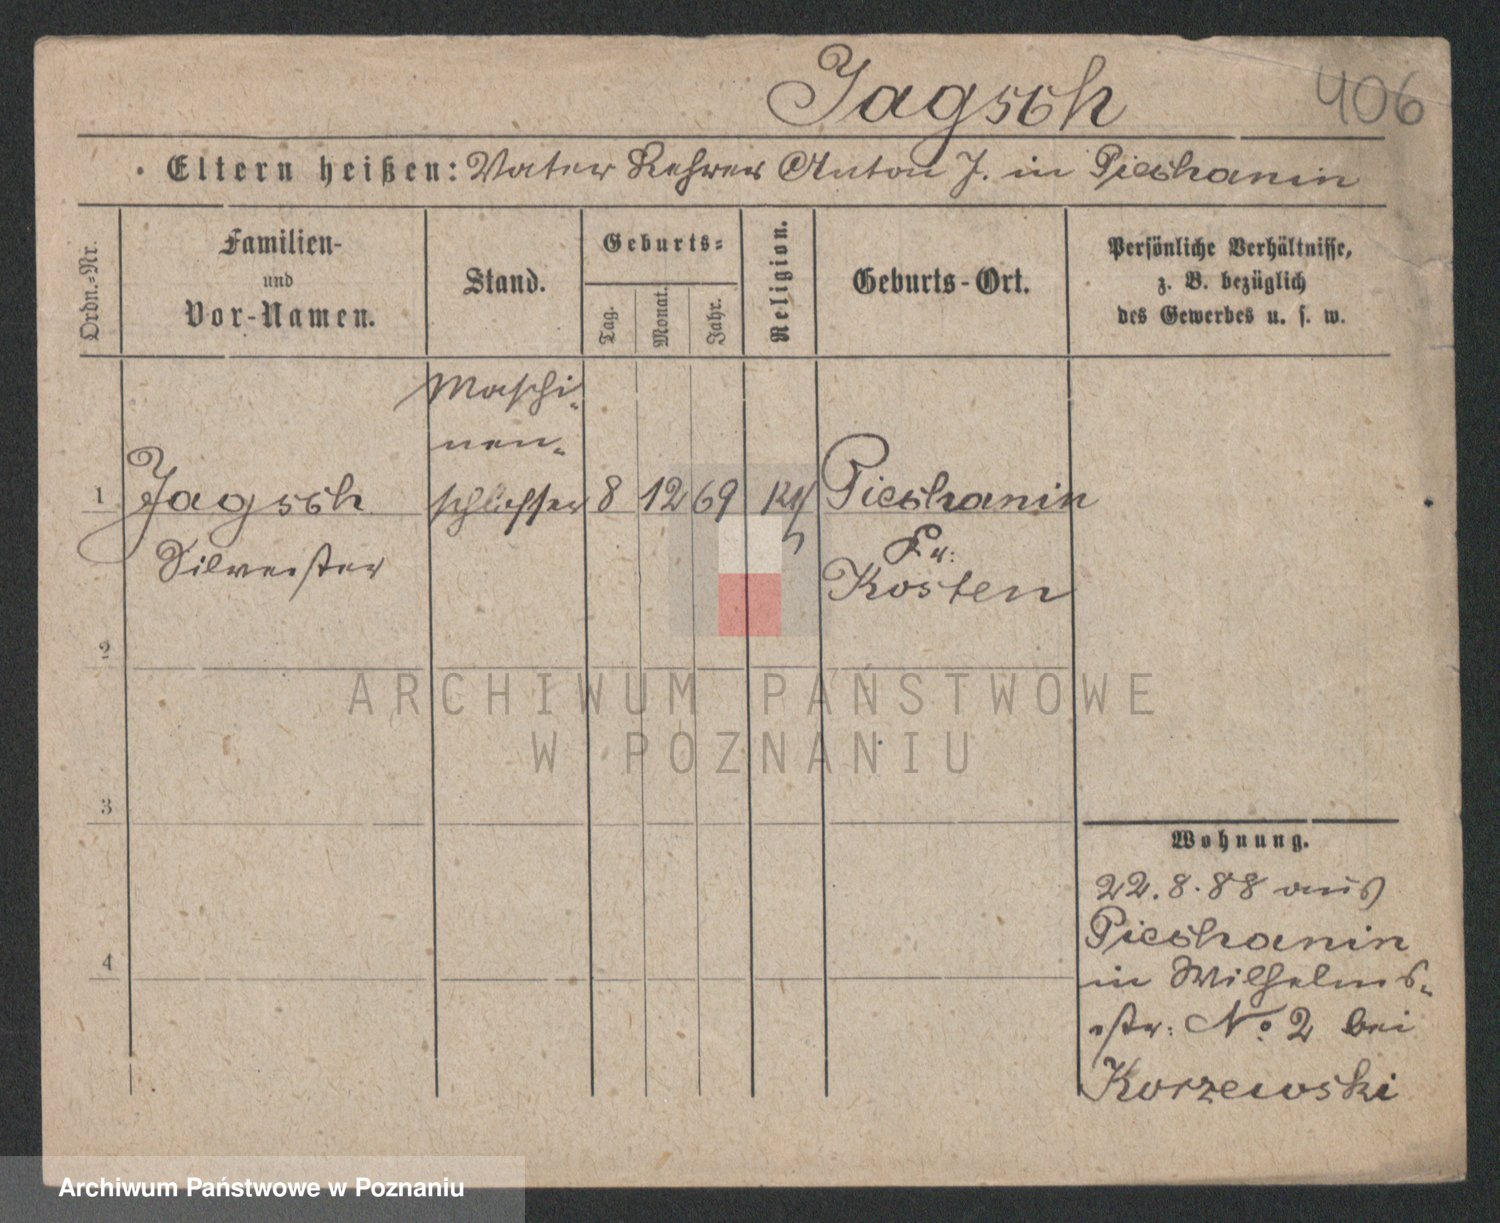 Jagsch
406
Eltern heißen: Vater Lehrer Anton J. in Piechanin
Ordn.-Nr.
Familien-
und
Vor-Namen.
Stand.
Geburts-
Tag.
Monat.
Jahr.
Religion.
Geburts-Ort.
Persönliche Verhältnisse,
z. B. bezüglich
des Gewerbes u. s. w.
Maschi-
nen-
1 Jagsch schlosser 8 12 69 kth Piechanin
Silvester
Kr:
Kosten
2
3
4
Wohnung.
22.8.88 aus
Piechanin
in Wilhelms-
str: No 2 bei
Korzewski
ARCHIWUM PAŃSTWOWE
W POZNANIU
Archiwum Państwowe w Poznaniu